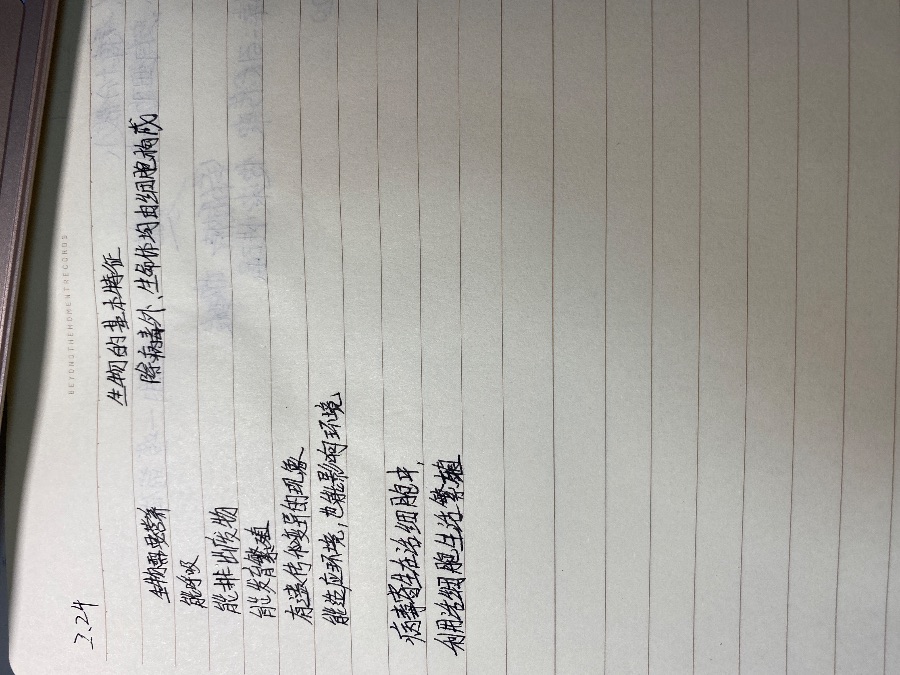 BEYONDTHEMOMENTRECORDS
2.24
生物的基本特征
除病毒外、生命体均由细胞构成
生物需要营养
能呼吸
能排出废物
能发育繁殖
有遗传和变异的现象
能适应环境，也能影响环境
病毒寄生在活细胞中，
利用活细胞生活繁殖